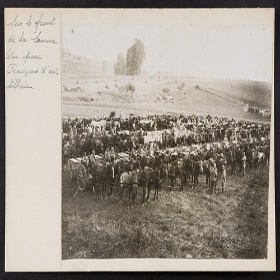 Sur le front
de la Somme
Un parc
Français d'ar-
tillerie